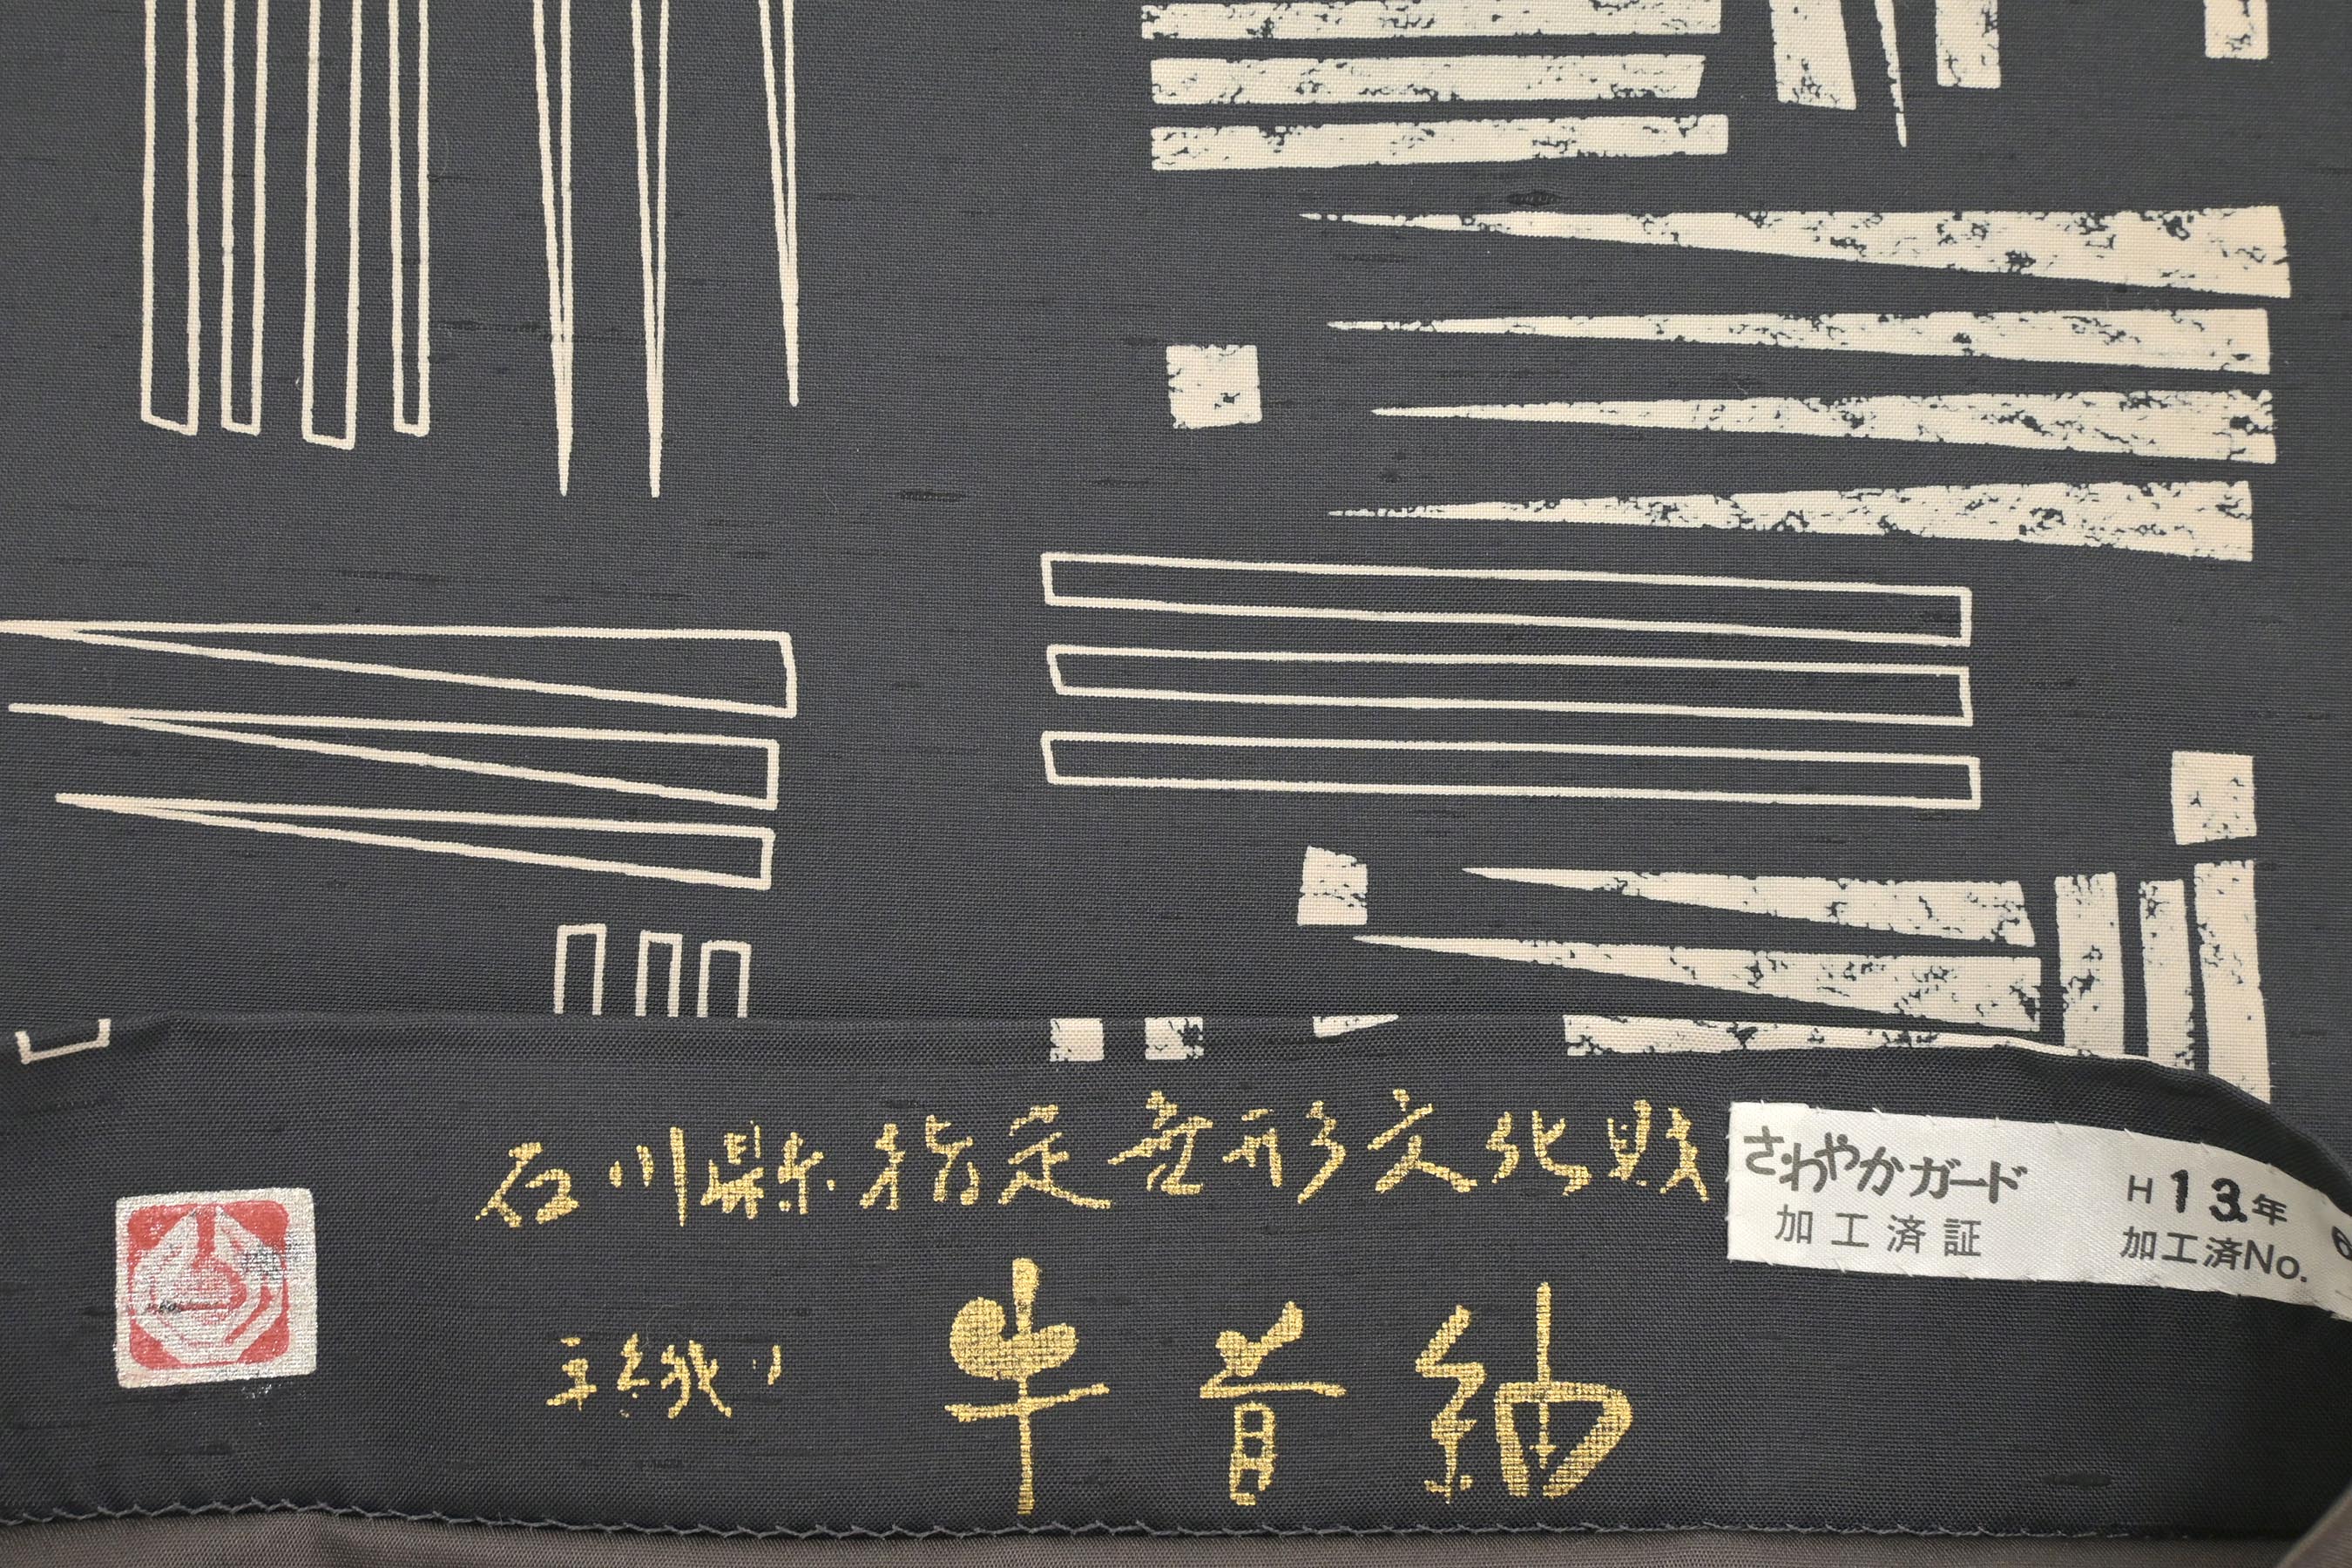 石川縣指定無形文化財
手織り 牛首紬
さわやかガード
加工済証
H13.年 6
加工済No.